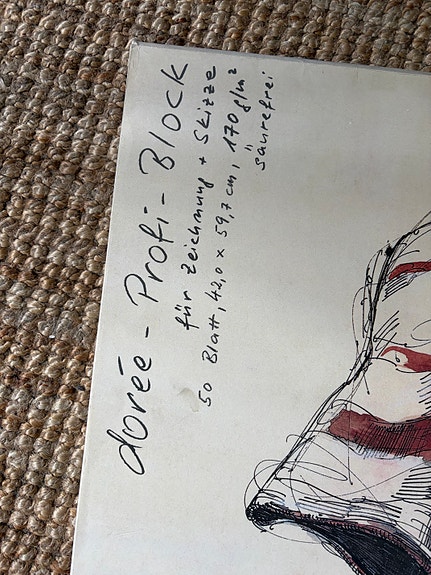 dorée - Profi - Block
für Zeichnung + Skizze
50 Blatt, 42,0 x 59,7 cm, 170 g/m²
säurefrei